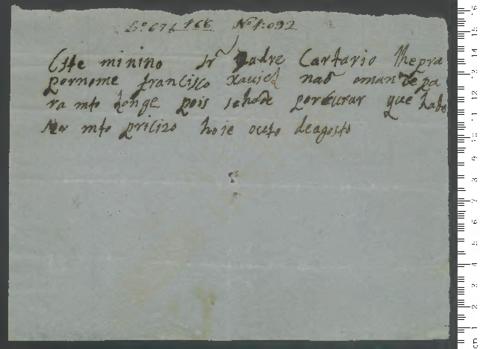 Nº 1:092
Este minino Sr Padre Cartario lhe pra
por nome francisco xavier não o mande pa
ra mto longe pois se hade porcurar que hade
ser mto priciso hoje outo de agosto